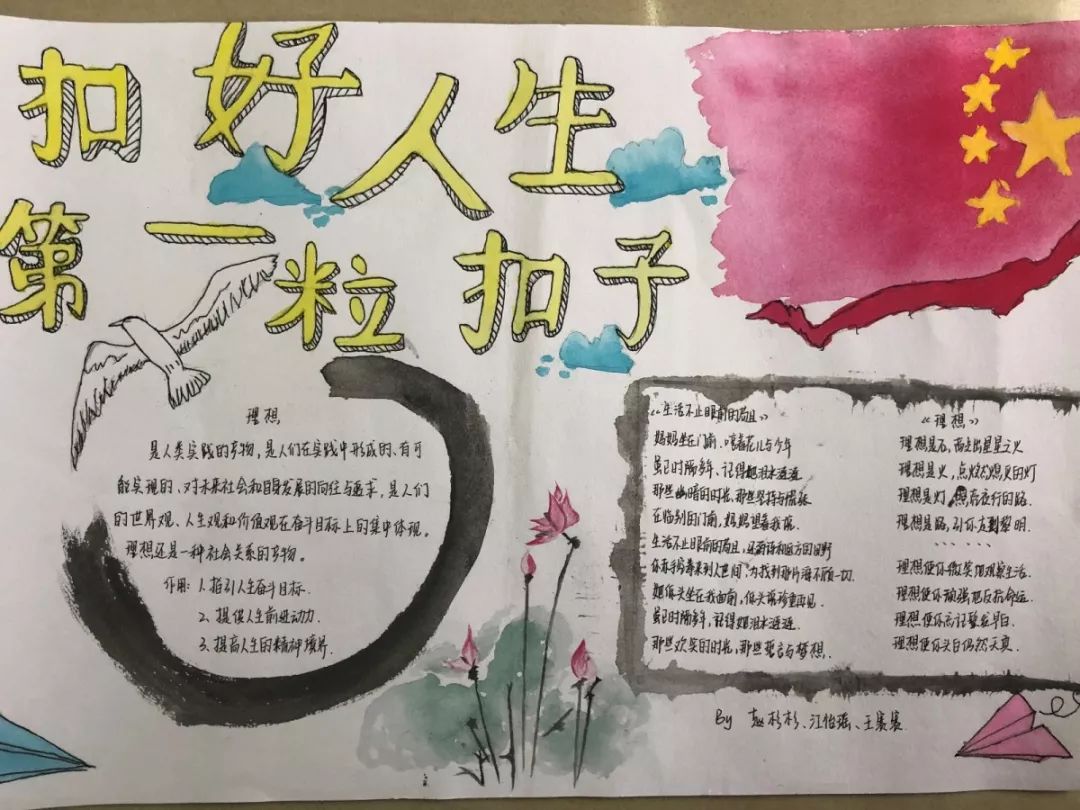 扣好人生
第一粒扣子
理想
是人类实践的产物,是人们在实践中形成的、有可
能实现的、对未来社会和自身发展的向往与追求,是人们
的世界观、人生观和价值观在奋斗目标上的集中体现。
理想还是一种社会关系的产物。
作用:1.指引人生奋斗目标.
2.提供人生前进动力.
3.提高人生的精神境界.
《生活不止眼前的苟且》
妈妈坐在门前,哼着花儿与少年
虽已时隔多年、记得她泪水涟涟
那些幽暗的时光,那些坚持与慌张
在临别的门前,妈妈望着我落
生活不止眼前的苟且,还有诗和远方的田野
你赤手空拳来到人世间,为找到那片海不顾一切.
她低头坐在我面前,低头落珍重再见.
虽已时隔多年,记得她泪水涟涟.
那些欢笑的时光,那些誓言与梦想.
《理想》
理想是石,敲出星星之火
理想是火,点燃熄灭的灯
理想是灯,照亮夜行的路.
理想是路,引你走到黎明.
......
理想使你微笑地观察生活.
理想使你顽强地反抗命运.
理想使你忘记鬓发早白.
理想使你头白仍然天真.
By 赵杉杉、江怡瑶、王